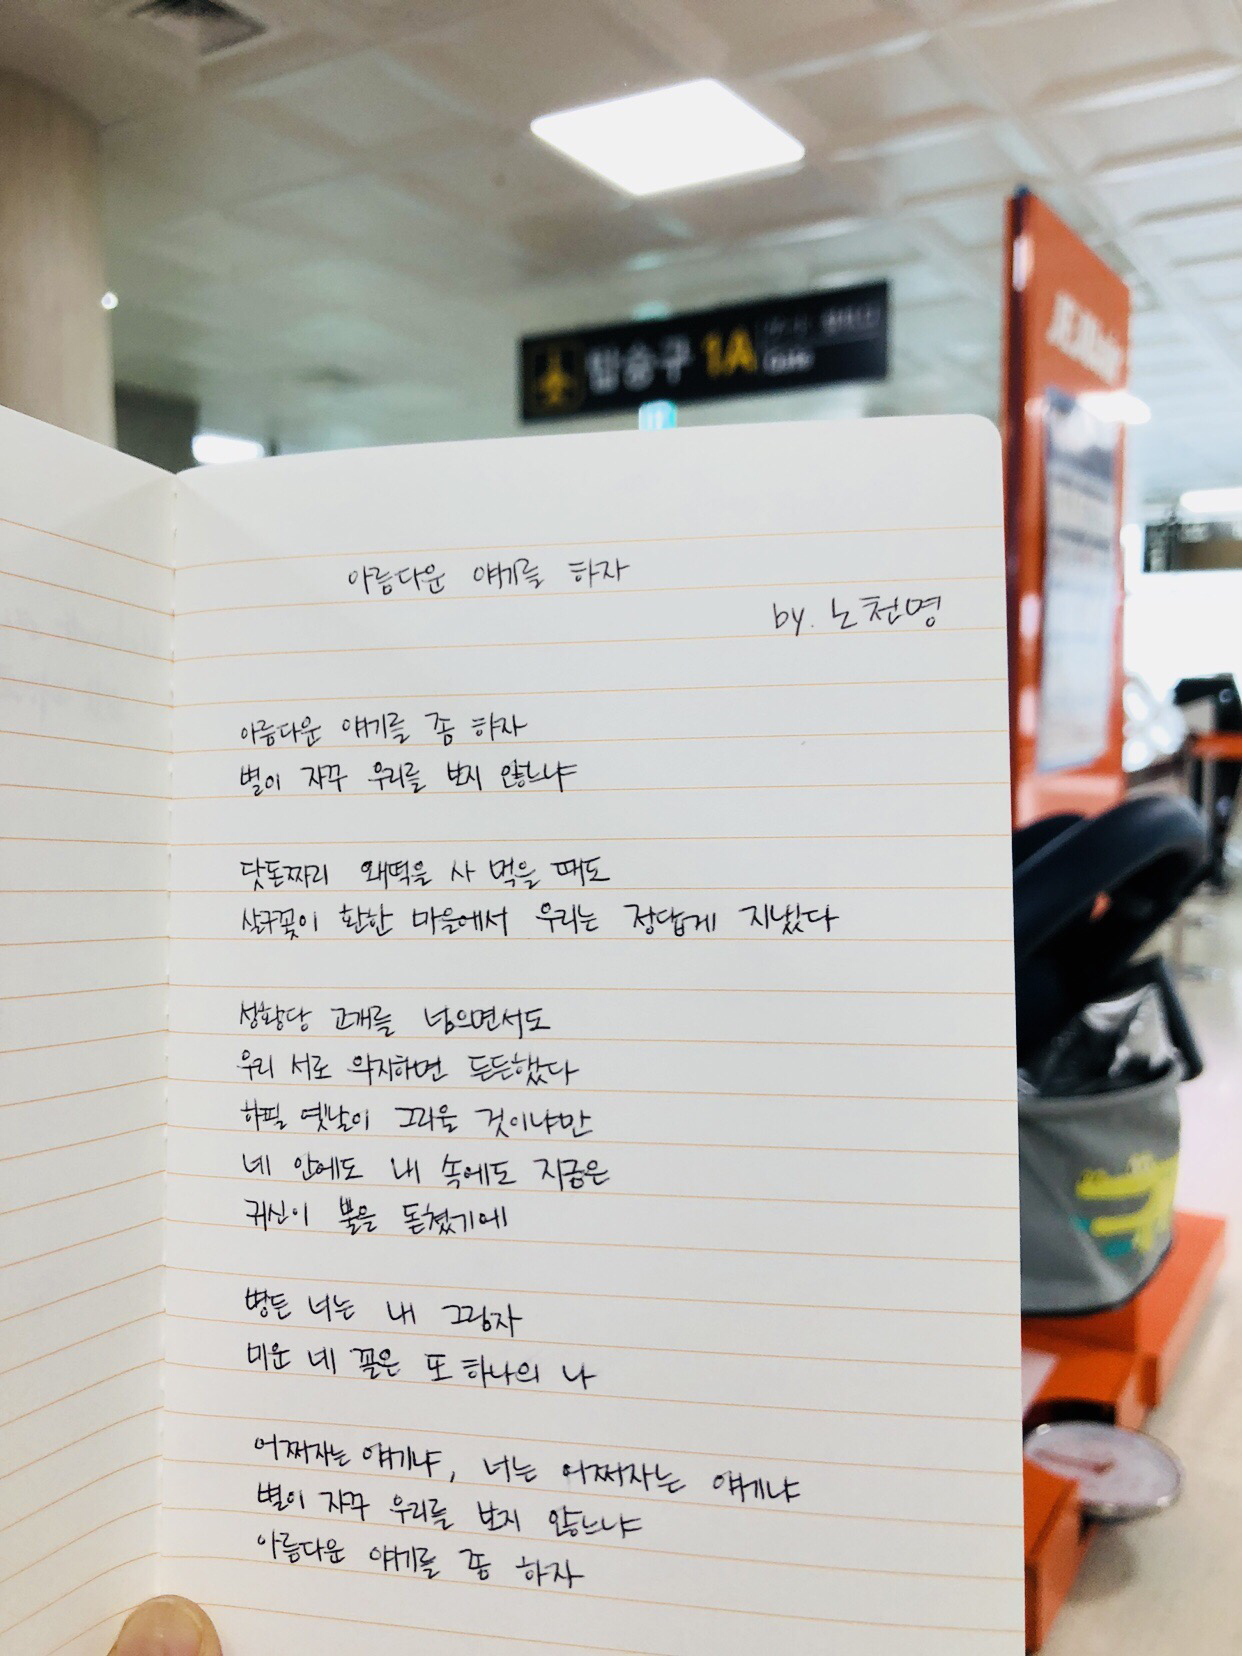 탑승구 1A
Gate
JEJUair
아름다운 얘기를 하자
by. 노천명
아름다운 얘기를 좀 하자
별이 자꾸 우리를 보지 않느냐
닷돈짜리 왜떡을 사 먹을 때도
살구꽃이 환한 마을에서 우리는 정답게 지냈다
성황당 고개를 넘으면서도
우리 서로 의지하면 든든했다
하필 옛날이 그리울 것이냐만
네 안에도 내 속에도 지금은
귀신이 뿔을 돋쳤기에
병든 너는 내 그림자
미운 네 꼴은 또 하나의 나
어쩌자는 얘기냐, 너는 어쩌자는 얘기냐
별이 자꾸 우리를 보지 않느냐
아름다운 얘기를 좀 하자